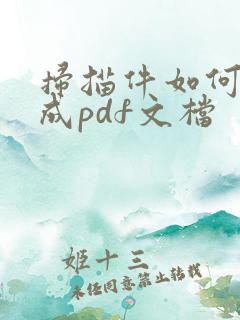 掃描件如何
成pdf文檔
姬十三
未任同意禁止转载